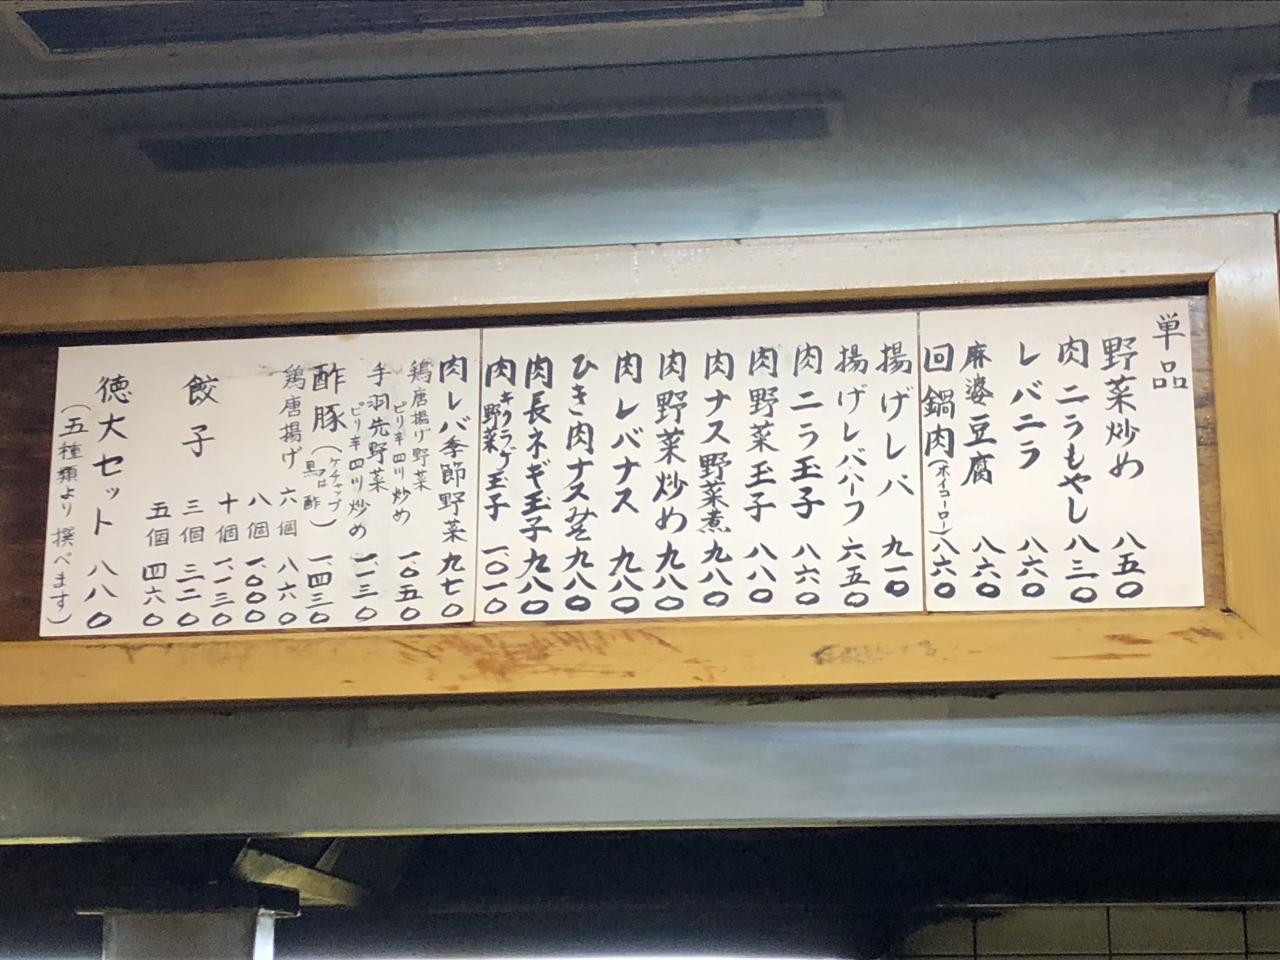 単品
野菜炒め 八五〇
肉ニラもやし 八三〇
レバニラ 八六〇
麻婆豆腐 八六〇
回鍋肉(ホイコーロー) 八六〇
揚げレバ 九一〇
揚げレバハーフ 六五〇
肉ニラ玉子 八六〇
肉野菜玉子 八八〇
肉ナス野菜煮 九八〇
肉野菜炒め 九八〇
肉レバナス 九八〇
ひき肉ナスみそ 九八〇
肉長ネギ玉子 九八〇
肉キクラゲ玉子野菜 一、〇一〇
肉レバ季節野菜 九七〇
鶏唐揚げ野菜ピリ辛四川炒め 一、〇五〇
手羽先野菜ピリ辛四川炒め 一、一三〇
酢豚(ケチャップ 又は 黒酢) 一、四三〇
鶏唐揚げ 六個 八六〇
八個 一、〇〇〇
十個 一、一三〇
餃子 三個 三二〇
五個 四六〇
徳大セット 八八〇
(五種類より撰べます)